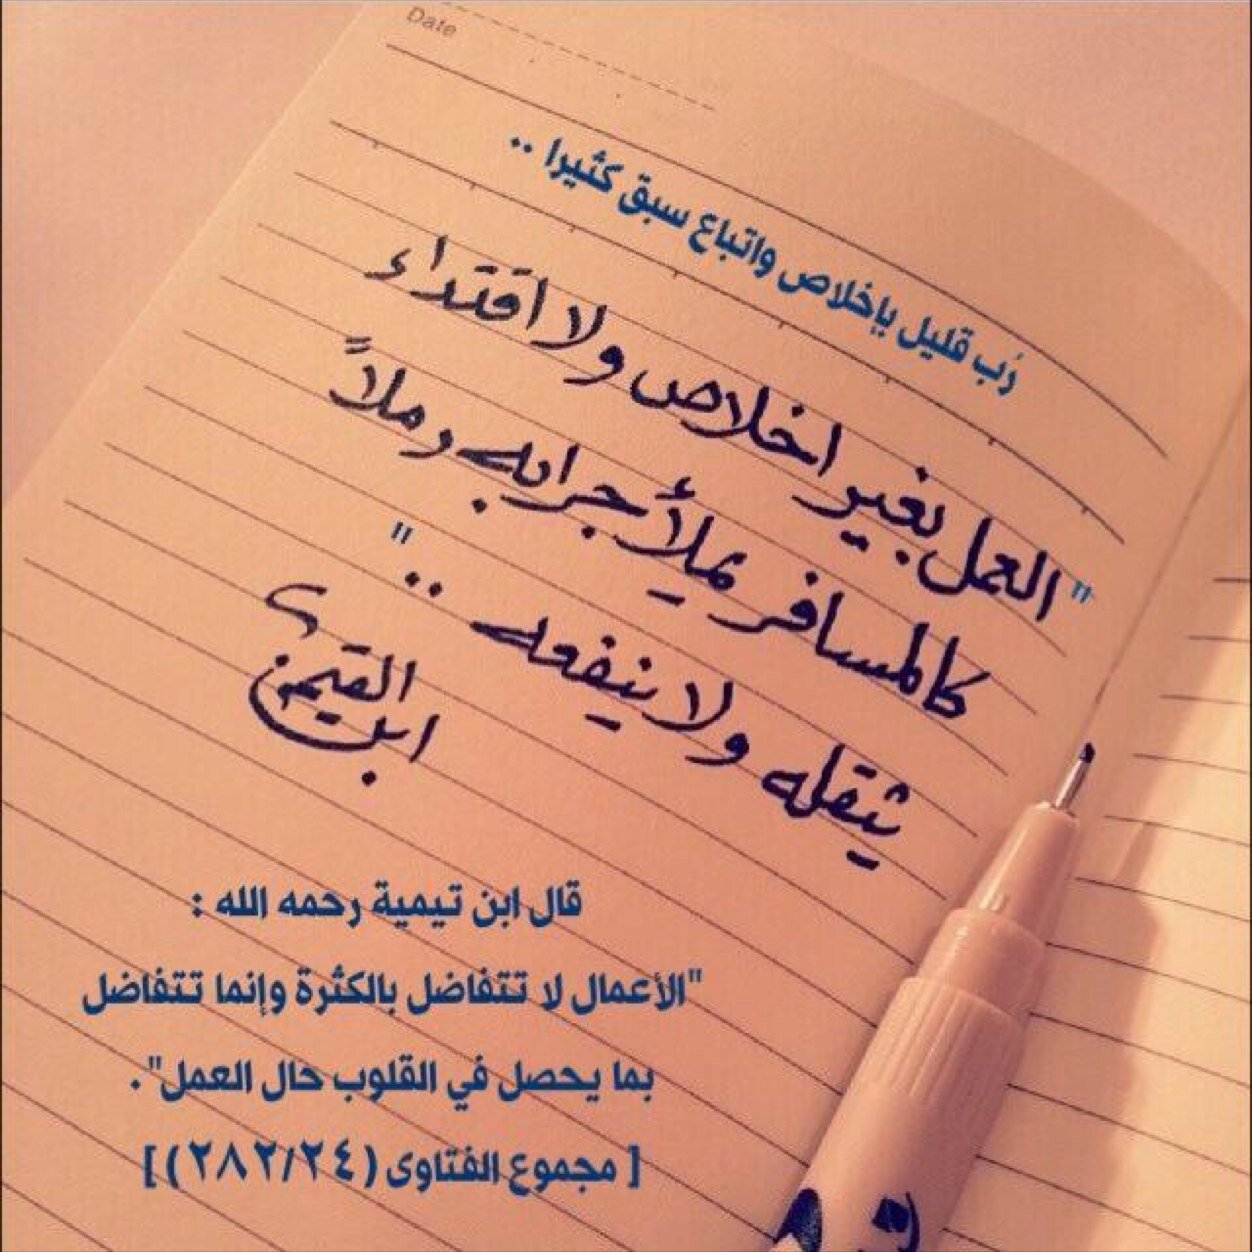 Date
رُب قليل بإخلاص واتباع سبق كثيرا ..
"العمل بغير اخلاص ولا اقتداء
كالمسافر يملأ جرابه رملاً
يثقله ولا ينفعه .."
ابن القيم
قال ابن تيمية رحمه الله :
"الأعمال لا تتفاضل بالكثرة وإنما تتفاضل
بما يحصل في القلوب حال العمل".
[ مجموع الفتاوى (٢٨٢/٢٤)]